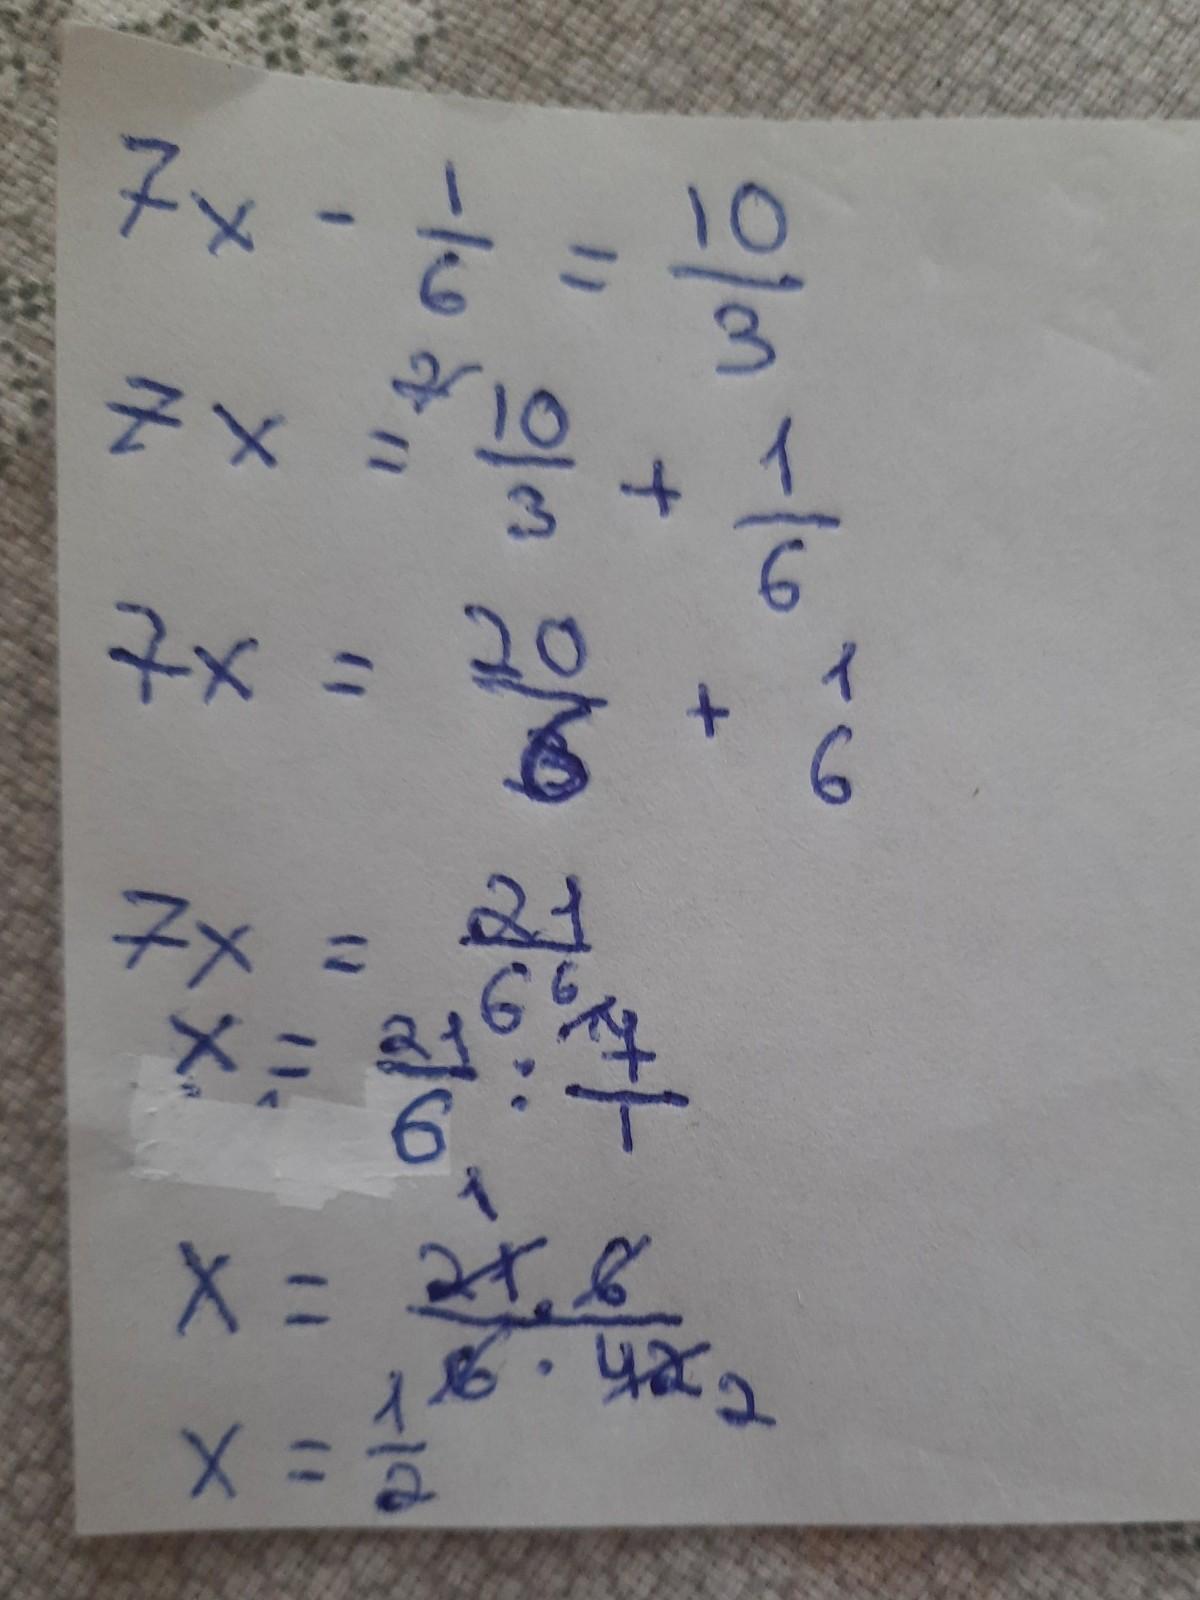 7x - 1/6 = 10/3
7x = 2 10/3 + 1/6
7x = 20/6 + 1 6
7x = 21/6
x = 21/6 : 6 7/1
x = 21 · 6 / 6 · 42 1 2
x = 1/2